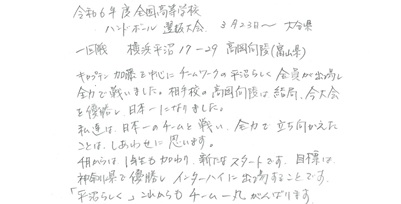 令和6年度全国高等学校
ハンドボール選抜大会 3月23日〜 大分県
一回戦 横浜平沼 17-29 高岡向陵(富山県)
キャプテン 加藤を中心に チームワークの平沼らしく 全員が出場し
全力で戦いました。相手校の高岡向陵は結局、今大会
を優勝し 日本一になりました。
私達は、日本一のチームと戦い、全力で立ち向かえた
ことは、しあわせに思います。
4月からは 1年生も加わり、新たなスタートです。目標は
神奈川県で優勝し インターハイに出場することです。
「平沼らしく」これからも チーム一丸 がんばります。